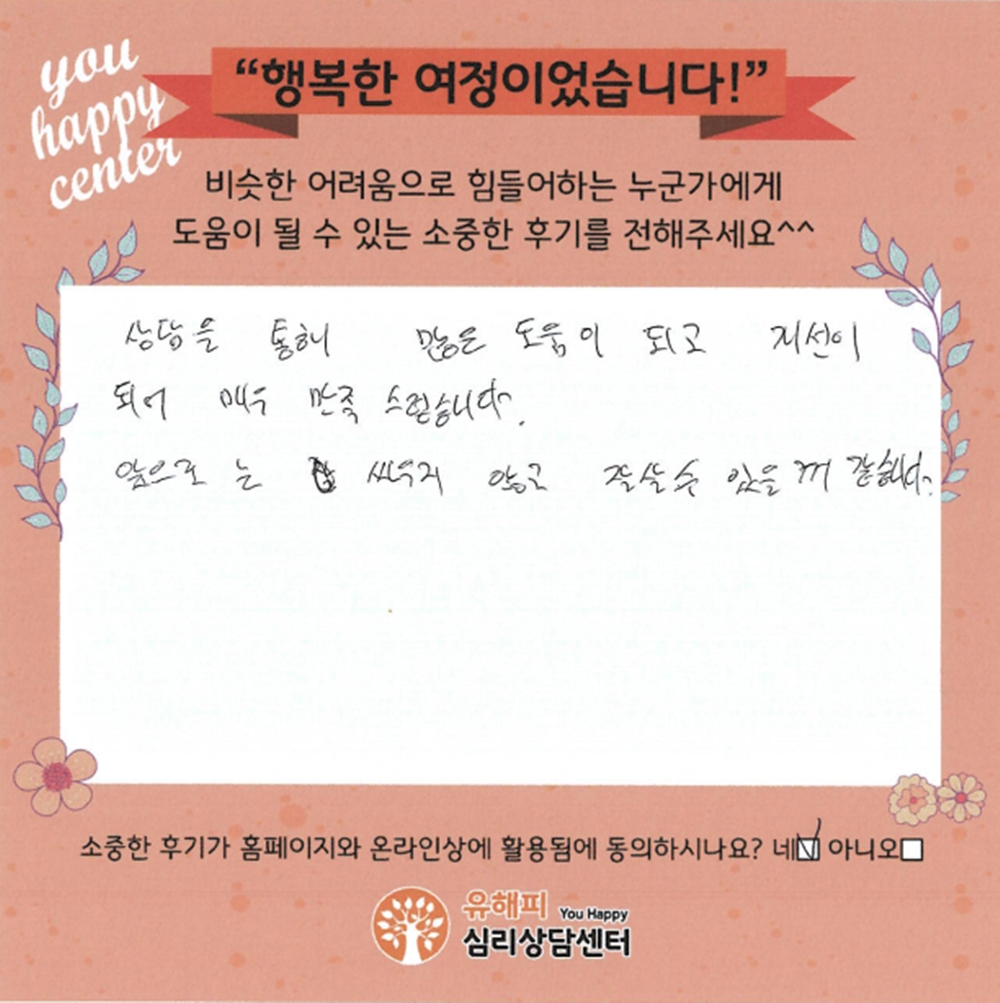 you
happy
center
“행복한 여정이었습니다!”
비슷한 어려움으로 힘들어하는 누군가에게
도움이 될 수 있는 소중한 후기를 전해주세요^^
상담을 통해 많은 도움이 되고 개선이
되어 매우 만족 스럽습니다.
앞으로 는 싸우지 않고 잘살수 있을꺼 같습니다.
소중한 후기가 홈페이지와 온라인상에 활용됨에 동의하시나요? 네 아니오
유해피 You Happy
심리상담센터